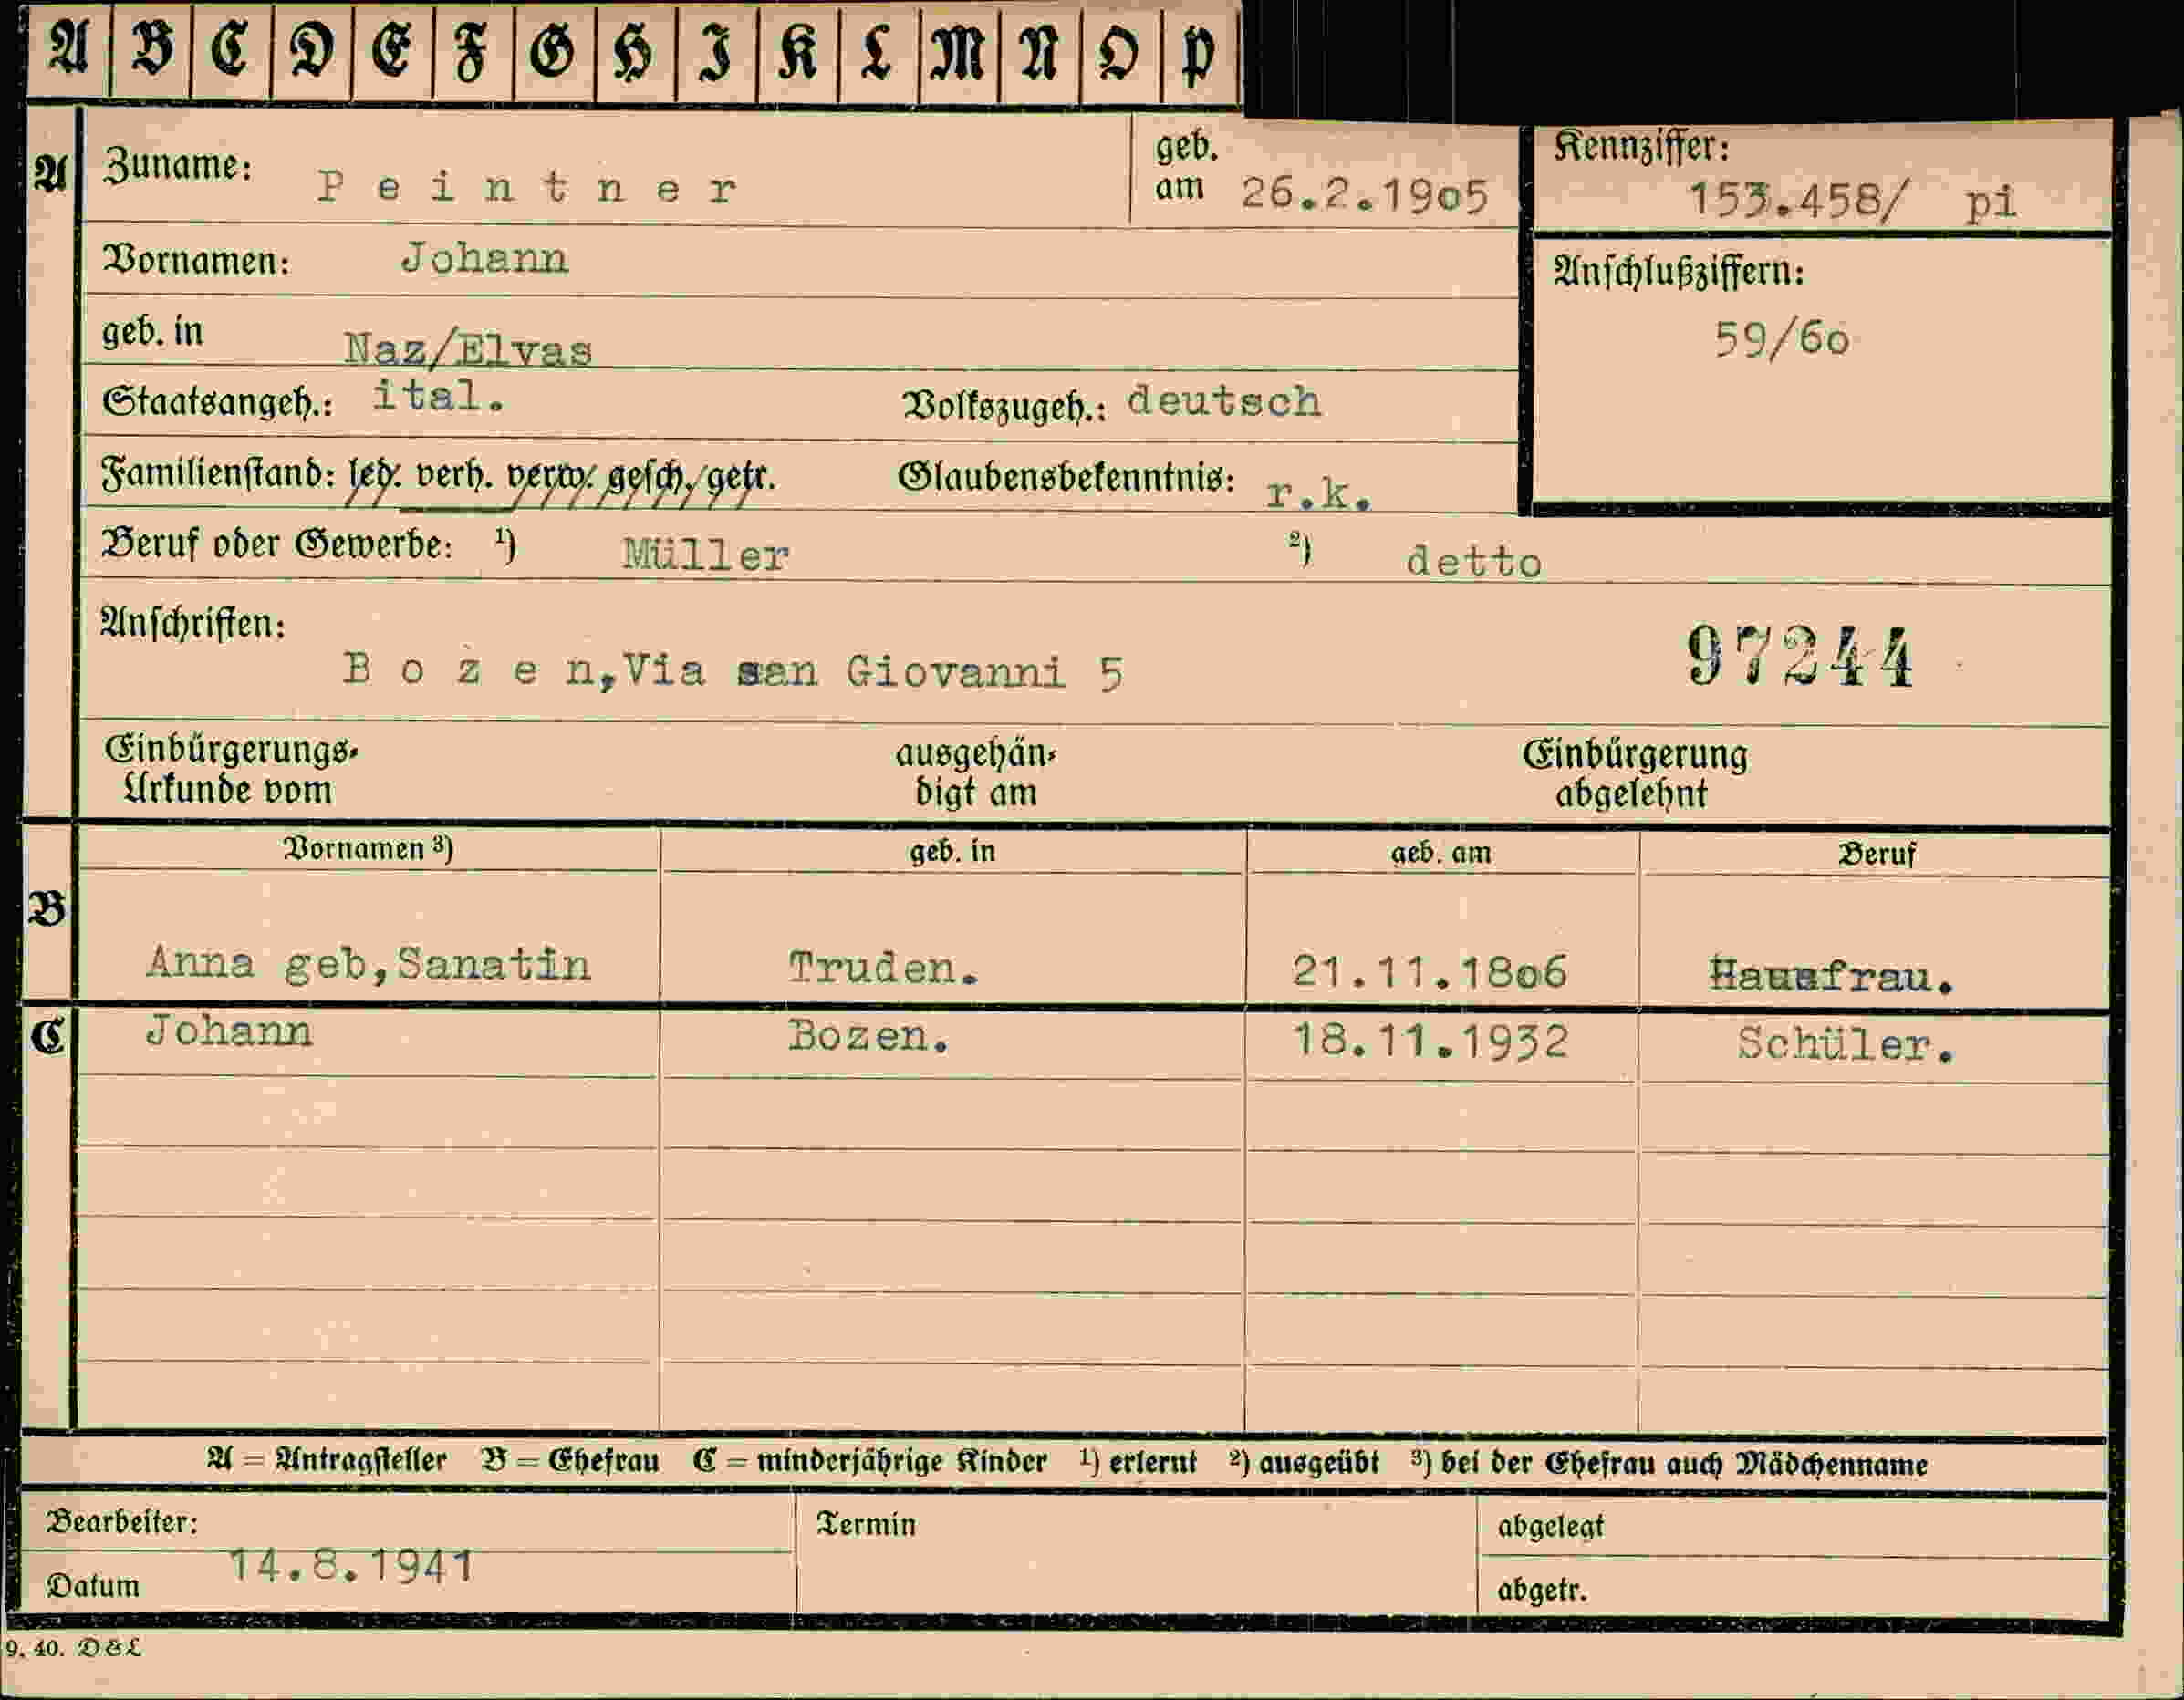 A B C D E F G H I K L M N O P
A Zuname: Peintner geb. am 26.2.1905 Kennziffer: 153.458/ pi
Vornamen: Johann Anschlußziffern:
geb. in Naz/Elvas 59/60
Staatsangeh.: ital. Volkszugeh.: deutsch
Familienstand: led. verh. verw. gesch. getr. Glaubensbekenntnis: r.k.
Beruf oder Gewerbe: 1) Müller 2) detto
Anschriften:
Bozen, Via san Giovanni 5 97244
Einbürgerungs- ausgehän- Einbürgerung
Urkunde vom digt am abgelehnt
Vornamen 3) geb. in geb. am Beruf
B
Anna geb,Sanatin Truden. 21.11.1806 Hausfrau.
C Johann Bozen. 18.11.1932 Schüler.
A = Antragsteller B = Ehefrau C = minderjährige Kinder 1) erlernt 2) ausgeübt 3) bei der Ehefrau auch Mädchenname
Bearbeiter: Termin abgelegt
14.8.1941
Datum abgetr.
9. 40. D & L